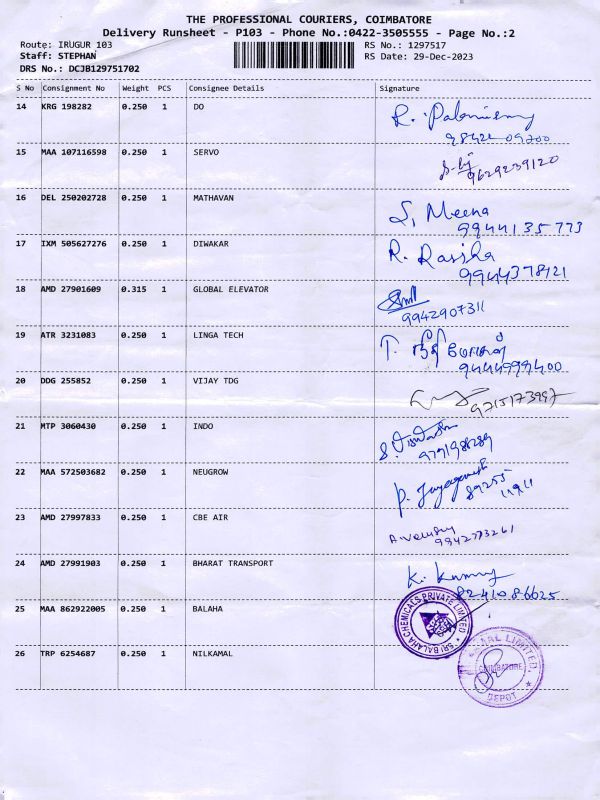 THE PROFESSIONAL COURIERS, COIMBATORE
Delivery Runsheet - P103 - Phone No.:0422-3505555 - Page No.:2
Route: IRUGUR 103
Staff: STEPHAN
DRS No.: DCJB129751702
RS No.: 1297517
RS Date: 29-Dec-2023
S No Consignment No Weight PCS Consignee Details Signature
14 KRG 198282 0.250 1 DO
15 MAA 107116598 0.250 1 SERVO
9629239120
16 DEL 250202728 0.250 1 MATHAVAN S. Meena
9944135773
17 IXM 505627276 0.250 1 DIWAKAR R.
9944378121
18 AMD 27901609 0.315 1 GLOBAL ELEVATOR
9942907311
19 ATR 3231083 0.250 1 LINGA TECH T.
20 DDG 255852 0.250 1 VIJAY TDG
9715173997
21 MTP 3060430 0.250 1 INDO
9791986289
22 MAA 572503682 0.250 1 NEUGROW
23 AMD 27997833 0.250 1 CBE AIR
9942773261
24 AMD 27991903 0.250 1 BHARAT TRANSPORT K. Kumar
8241086625
25 MAA 862922005 0.250 1 BALAHA
SRI BALAHA CHEMICALS PRIVATE LIMITED
26 TRP 6254687 0.250 1 NILKAMAL
LIMITED.
COIMBATORE
DEPOT